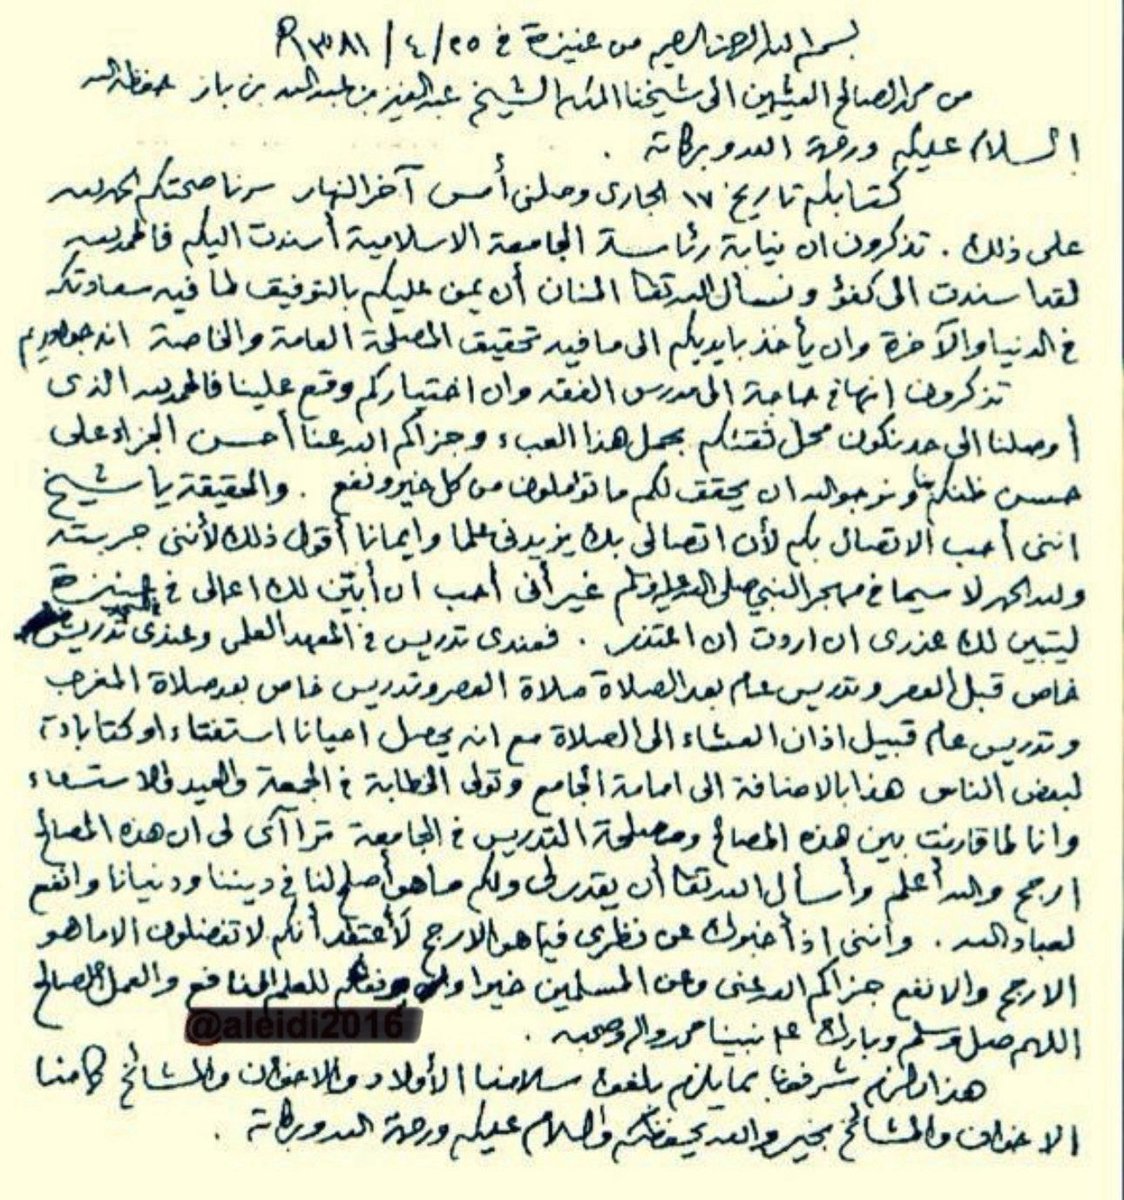 بسم الله الرحمن الرحيم من عنيزة في ٢٥/٤/١٣٨١ هـ
من محمد الصالح العثيمين الى شيخنا المكرم الشيخ عبدالعزيز بن عبدالله بن باز حفظه الله
السلام عليكم ورحمة الله وبركاته .
كتابكم تاريخ ١٧ الجاري وصلني أمس آخر النهار سرنا صحتكم الحمد لله
على ذلك . تذكرون ان نيابة رئاسة الجامعة الاسلامية أسندت اليكم فالحمد لله
لقد اسندت الى كفؤ ونسأل الله تعالى المنان أن يمن عليكم بالتوفيق لما فيه سعادتكم
في الدنيا والآخرة وان يأخذ بايديكم الى ما فيه تحقيق المصلحة العامة والخاصة انه جواد كريم
تذكرون انها في حاجة الى مدرس الفقه وان اختياركم وقع علينا فالحمد لله الذي
أوصلنا الى حد نكون محل ثقتكم بحمل هذا العبء وجزاكم الله عنا أحسن الجزاء على
حسن ظنكم بنا ونرجو الله ان يحقق لكم ما تؤملون من كل خير ونفع . والحقيقة يا شيخ
انني أحب الاتصال بكم لأن اتصالي بك يزيدني علما وايمانا أقول ذلك لأنني جربته
ولله الحمد لا سيما في مهجر النبي صلى الله عليه وسلم غير أني أحب ان أبين لك اعمالي في عنيزة
ليتبين لك عذري ان اردت ان اعتذر . فعندي تدريس في المعهد العلمي وعندي تدريس
خاص قبل العصر وتدريس عام بعد الصلاة صلاة العصر وتدريس خاص بعد صلاة المغرب
وتدريس عام قبيل اذان العشاء الى الصلاة مع انه يحصل احيانا استفتاء او كتابات
لبعض الناس هذا بالاضافة الى امامة الجامع وتولي الخطابة في الجمعة والعيد والاستسقاء
وانا لما قارنت بين هذه المصالح ومصلحة التدريس في الجامعة تراآى لي ان هذه المصالح
ارجح والله أعلم وأسأل الله تعالى أن يقدر لي ولكم ما هو أصلح لنا في ديننا ودنيانا وانفع
لعباد الله . وانني اذ أخبرك عن نظري فيما هو الارجح لأعتقد أنكم لا تفضلون الا ما هو
الارجح والانفع جزاكم الله عني وعن المسلمين خيرا ووفقكم للعلم النافع والعمل الصالح
@aleidi2016
اللهم صل وسلم وبارك على نبينا محمد واله وصحبه .
هذا ما لزم شرفونا بما يلزم بلغوا سلامنا الأولاد والاخوان والمشائخ كما منا
الاخوان والمشائخ بخير والله يحفظكم والسلام عليكم ورحمة الله وبركاته .